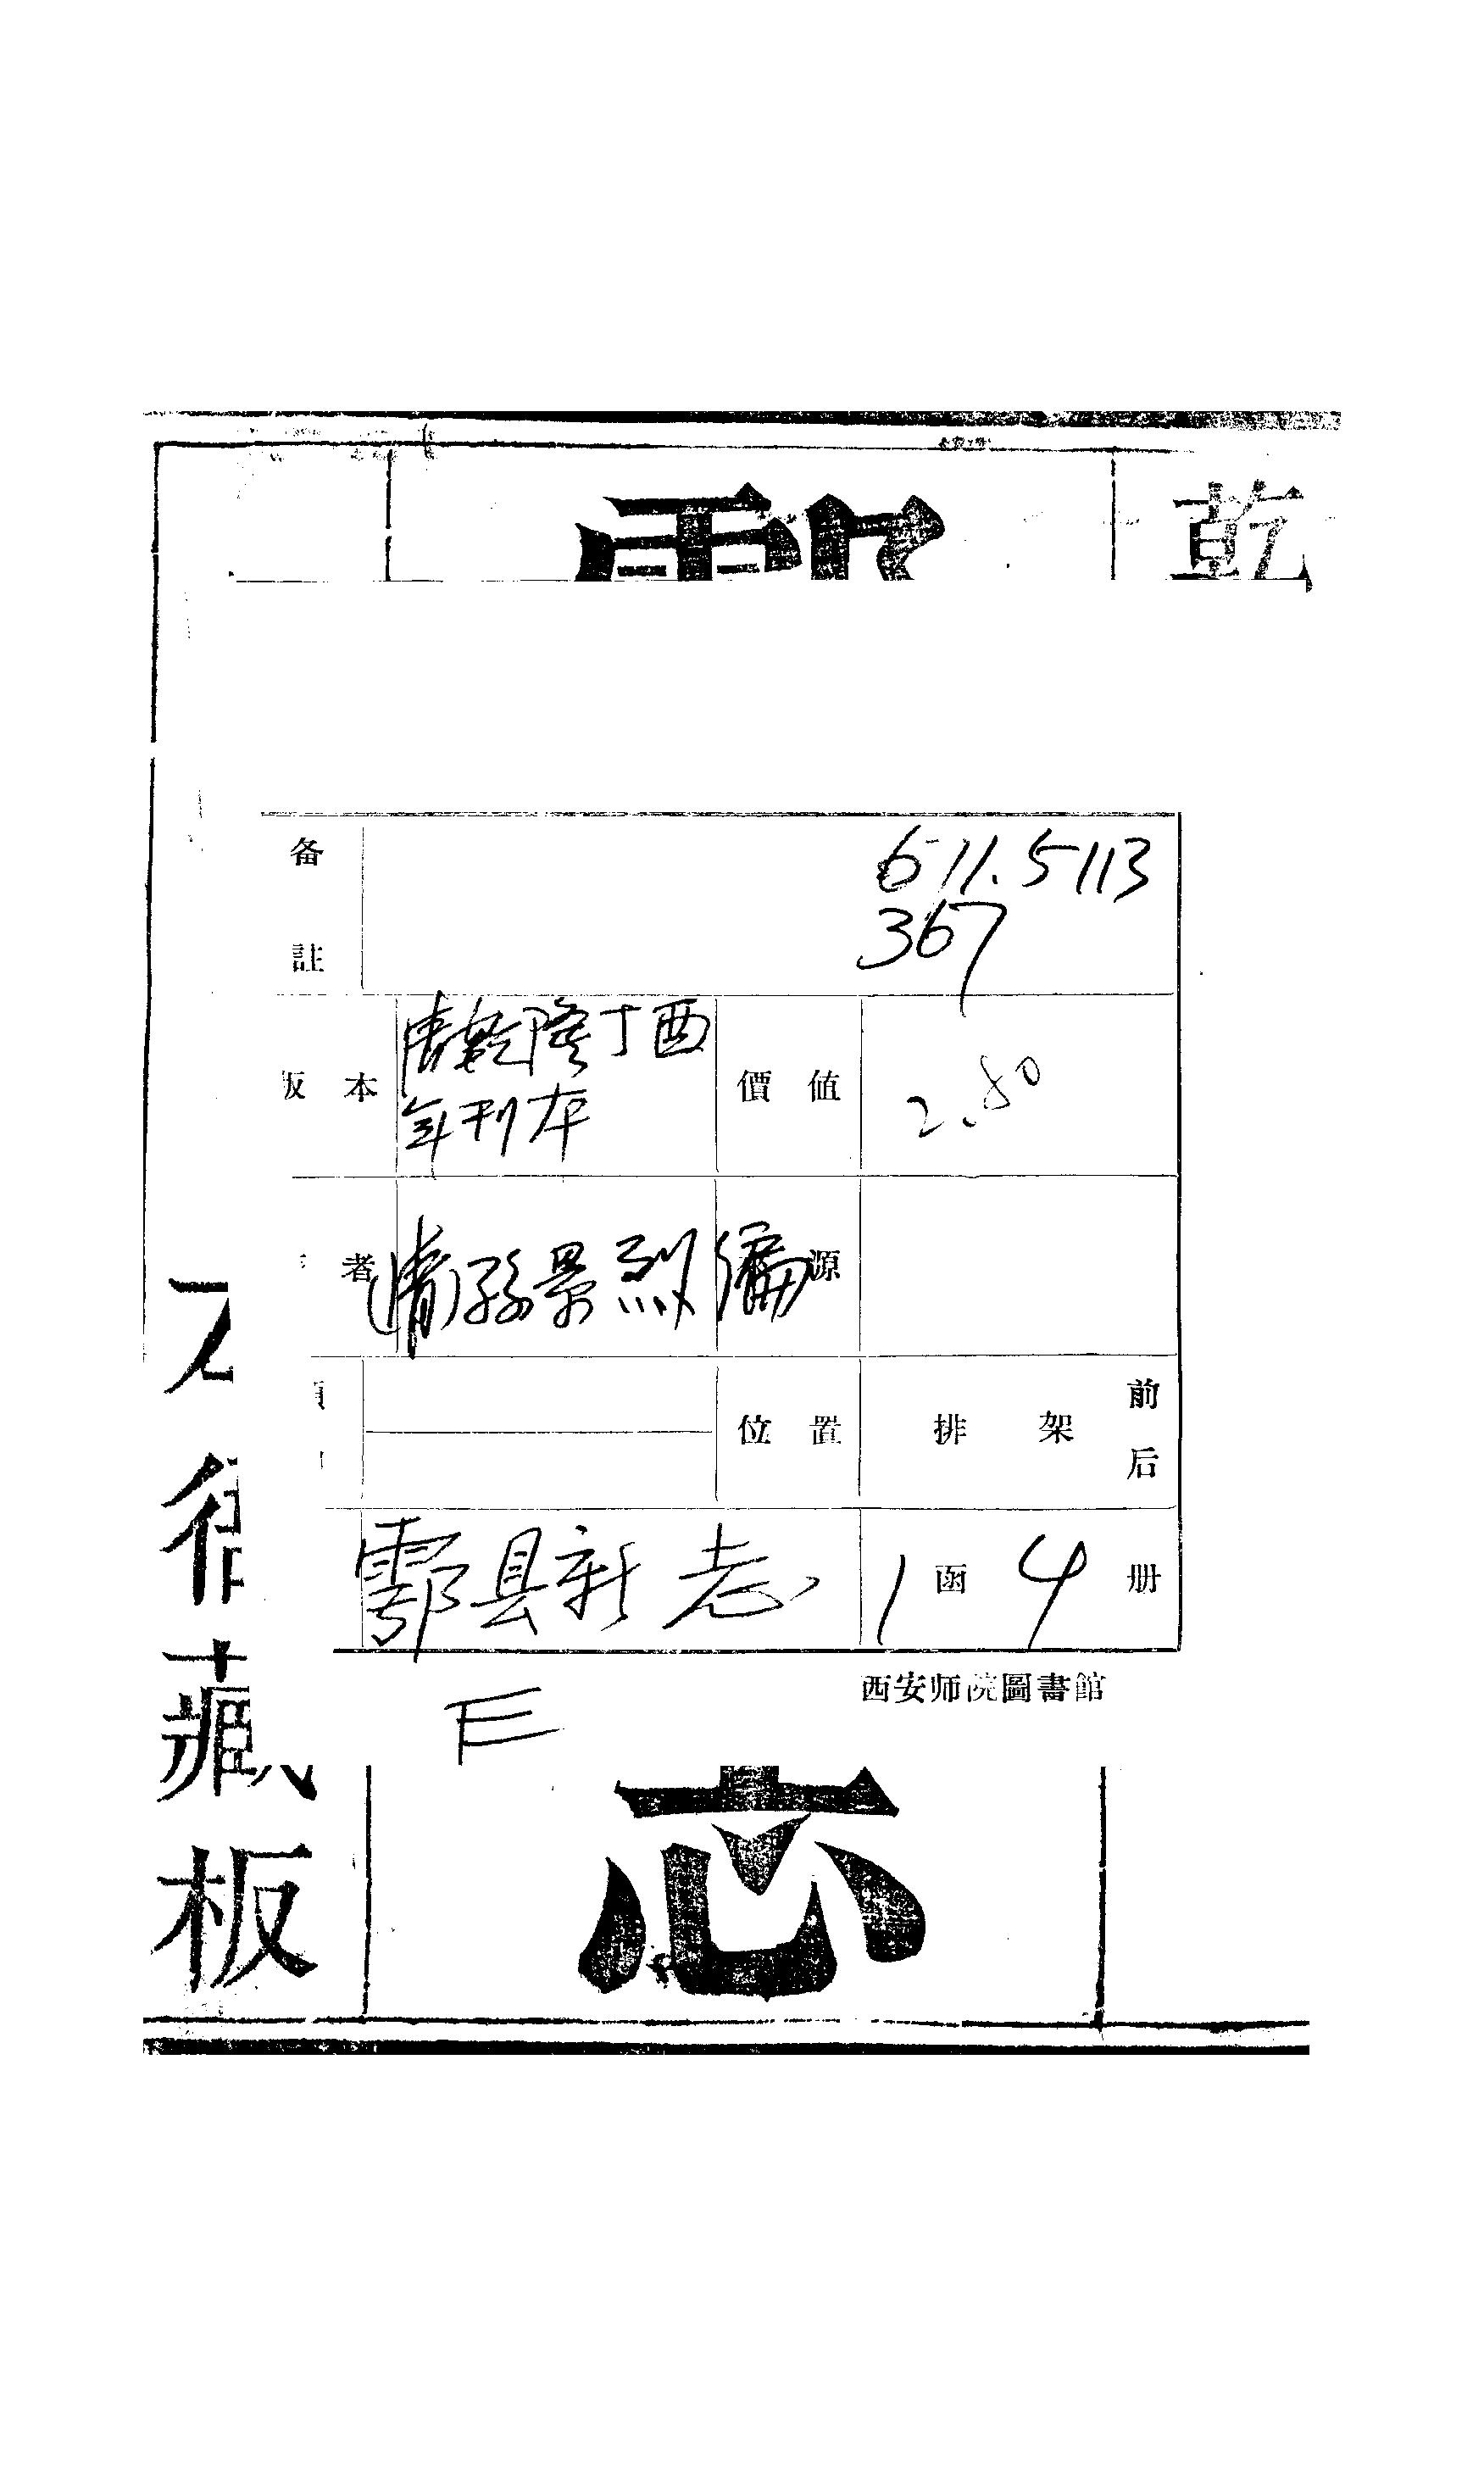 乾
备註 611.5113
367
版本 清乾隆丁酉
年刊本 價值 2.80
者 (清)孫景烈編 源
位置 排架 前后
鄠县新志 1函 4册
西安师院圖書館
E
志
藏板